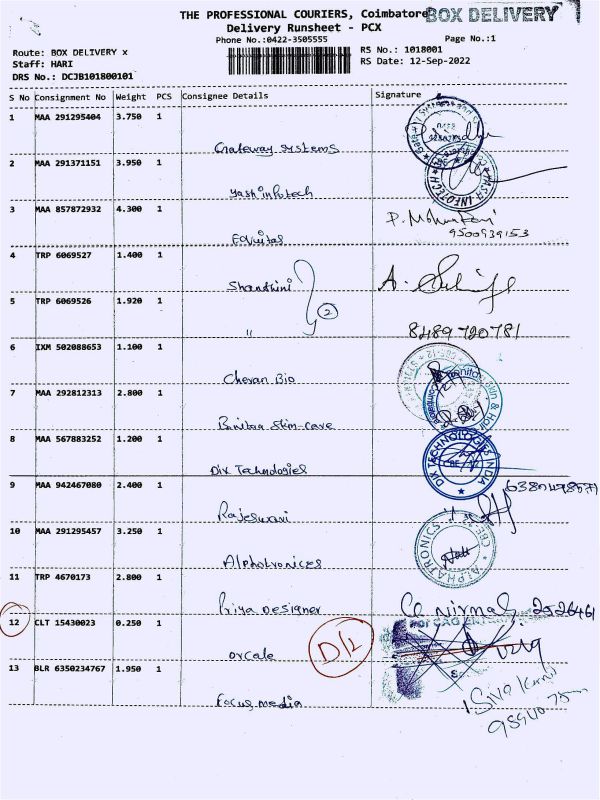 THE PROFESSIONAL COURIERS, Coimbatore
BOX DELIVERY
Delivery Runsheet - PCX
Phone No.:0422-3505555
Page No.:1
Route: BOX DELIVERY x
RS No.: 1018001
Staff: HARI
RS Date: 12-Sep-2022
DRS No.: DCJB101800101
S No Consignment No Weight PCS Consignee Details Signature
1 MAA 291295404 3.750 1
Gateway Systems
2 MAA 291371151 3.950 1
Yash infotech
3 MAA 857872932 4.300 1 P. Mohan
Equitas 9500939153
4 TRP 6069527 1.400 1
Shandhini A.
5 TRP 6069526 1.920 1 2
" 8489720781
6 IXM 502088653 1.100 1
Cheran Bio
7 MAA 292812313 2.800 1
Skin-care
8 MAA 567883252 1.200 1
Dix Technologies DIX TECHNOLOGIES INDIA
9 MAA 942467080 2.400 1
Rajeswari
10 MAA 291295457 3.250 1
Alphotronices ALPHATRONICS
11 TRP 4670173 2.800 1
Priya Designer Nirmal
12 CLT 15430023 0.250 1
orcale D/2
13 BLR 6350234767 1.950 1
Focus media